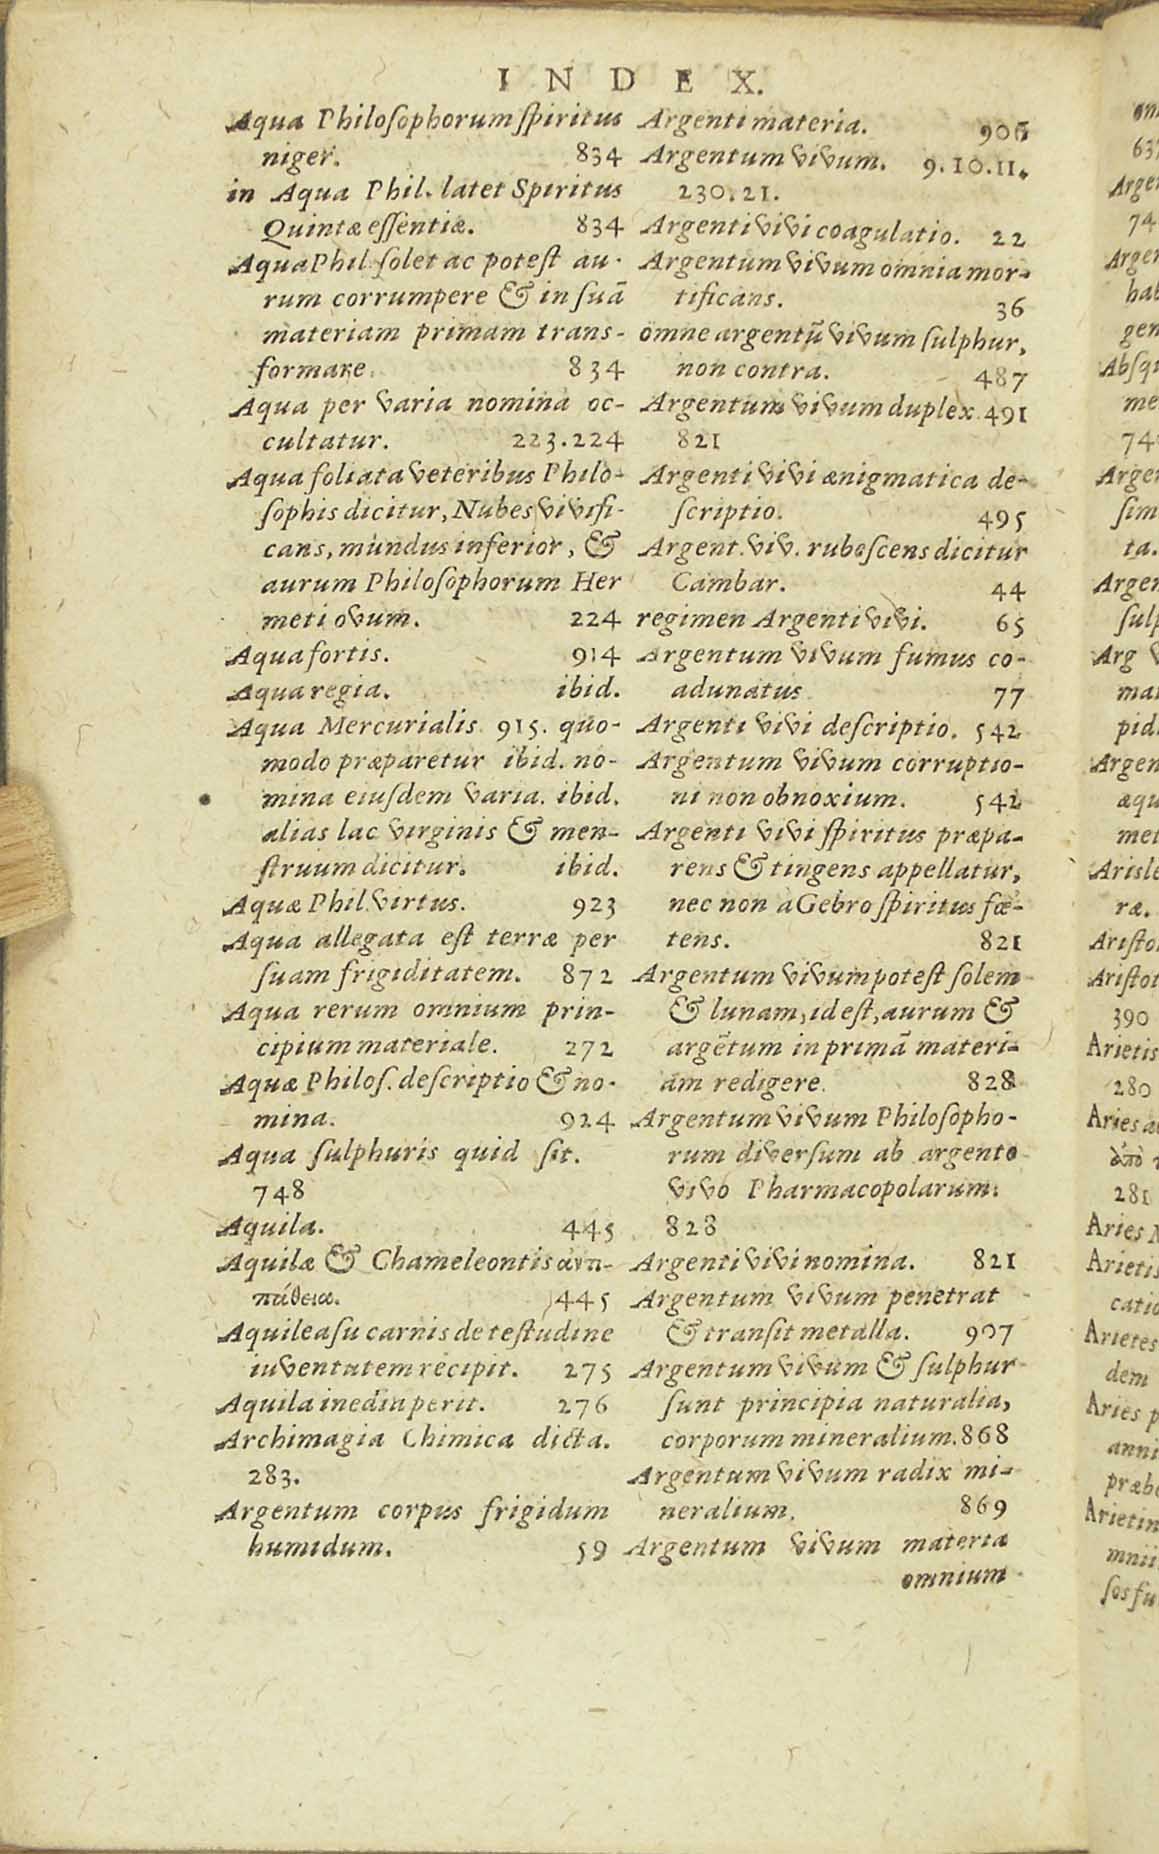 INDEX.
Aqua Philoſophorum ſpiritus
niger. 834
in Aqua Phil. latet Spiritus
Quintæ eſſentiæ. 834
Aqua Phil. ſolet ac poteſt au-
rum corrumpere & in ſuā
materiam primam trans-
formare. 834
Aqua per varia nomina oc-
cultatur. 223.224
Aqua foliata veteribus Philo-
ſophis dicitur, Nubes vivifi-
cans, mundus inferior, &
aurum Philoſophorum Her
meti ovum. 224
Aqua fortis. 914
Aqua regia. ibid.
Aqua Mercurialis 915. quo-
modo præparetur ibid. no-
mina eiuſdem varia. ibid.
alias lac virginis & men-
ſtruum dicitur. ibid.
Aquæ Phil. virtus. 923
Aqua allegata eſt terræ per
ſuam frigiditatem. 872
Aqua rerum omnium prin-
cipium materiale. 272
Aquæ Philoſ. deſcriptio & no-
mina. 924
Aqua ſulphuris quid ſit.
748
Aquila. 445
Aquilæ & Chameleontis ἀντι-
πάθεια. 445
Aquilea ſu carnis de teſtudine
iuventutem recipit. 275
Aquila inedia perit. 276
Archimagia Chimica dicta.
283.
Argentum corpus frigidum
humidum. 59
Argenti materia. 906
Argentum vivum. 9.10.11.
230.21.
Argenti vivi coagulatio. 22
Argentum vivum omnia mor-
tificans. 36
omne argentū vivum ſulphur,
non contra. 487
Argentum vivum duplex. 491
821
Argenti vivi ænigmatica de-
ſcriptio. 495
Argent. viv. rubeſcens dicitur
Cambar. 44
regimen Argenti vivi. 65
Argentum vivum fumus co-
adunatus 77
Argenti vivi deſcriptio. 542
Argentum vivum corruptio-
ni non obnoxium. 542
Argenti vivi ſpiritus præpa-
rens & tingens appellatur,
nec non à Gebro ſpiritus fœ-
tens. 821
Argentum vivum poteſt ſolem
& lunam, id eſt, aurum &
argētum in primā materi-
am redigere. 828
Argentum vivum Philoſopho-
rum diverſum ab argento
vivo Pharmacopolarum.
828
Argenti vivi nomina. 821
Argentum vivum penetrat
& tranſit metalla. 907
Argentum vivum & ſulphur
ſunt principia naturalia,
corporum mineralium. 868
Argentum vivum radix mi-
neralium. 869
Argentum vivum materia
omnium
637
Arge
74
Argen
hab
gen
Abſqu
me
74
Argen
ſim
ta.
Argen
ſulp
Arg v
mat
pid
Argen
æqu
met
Arisle
ræ.
Ariſto
Ariſtot
390
Arietis
280
Aries a
281
Aries N
Arietis
catio
Arietes
dem
Aries p
anni
præb
Arietin
mnii
ſos fu